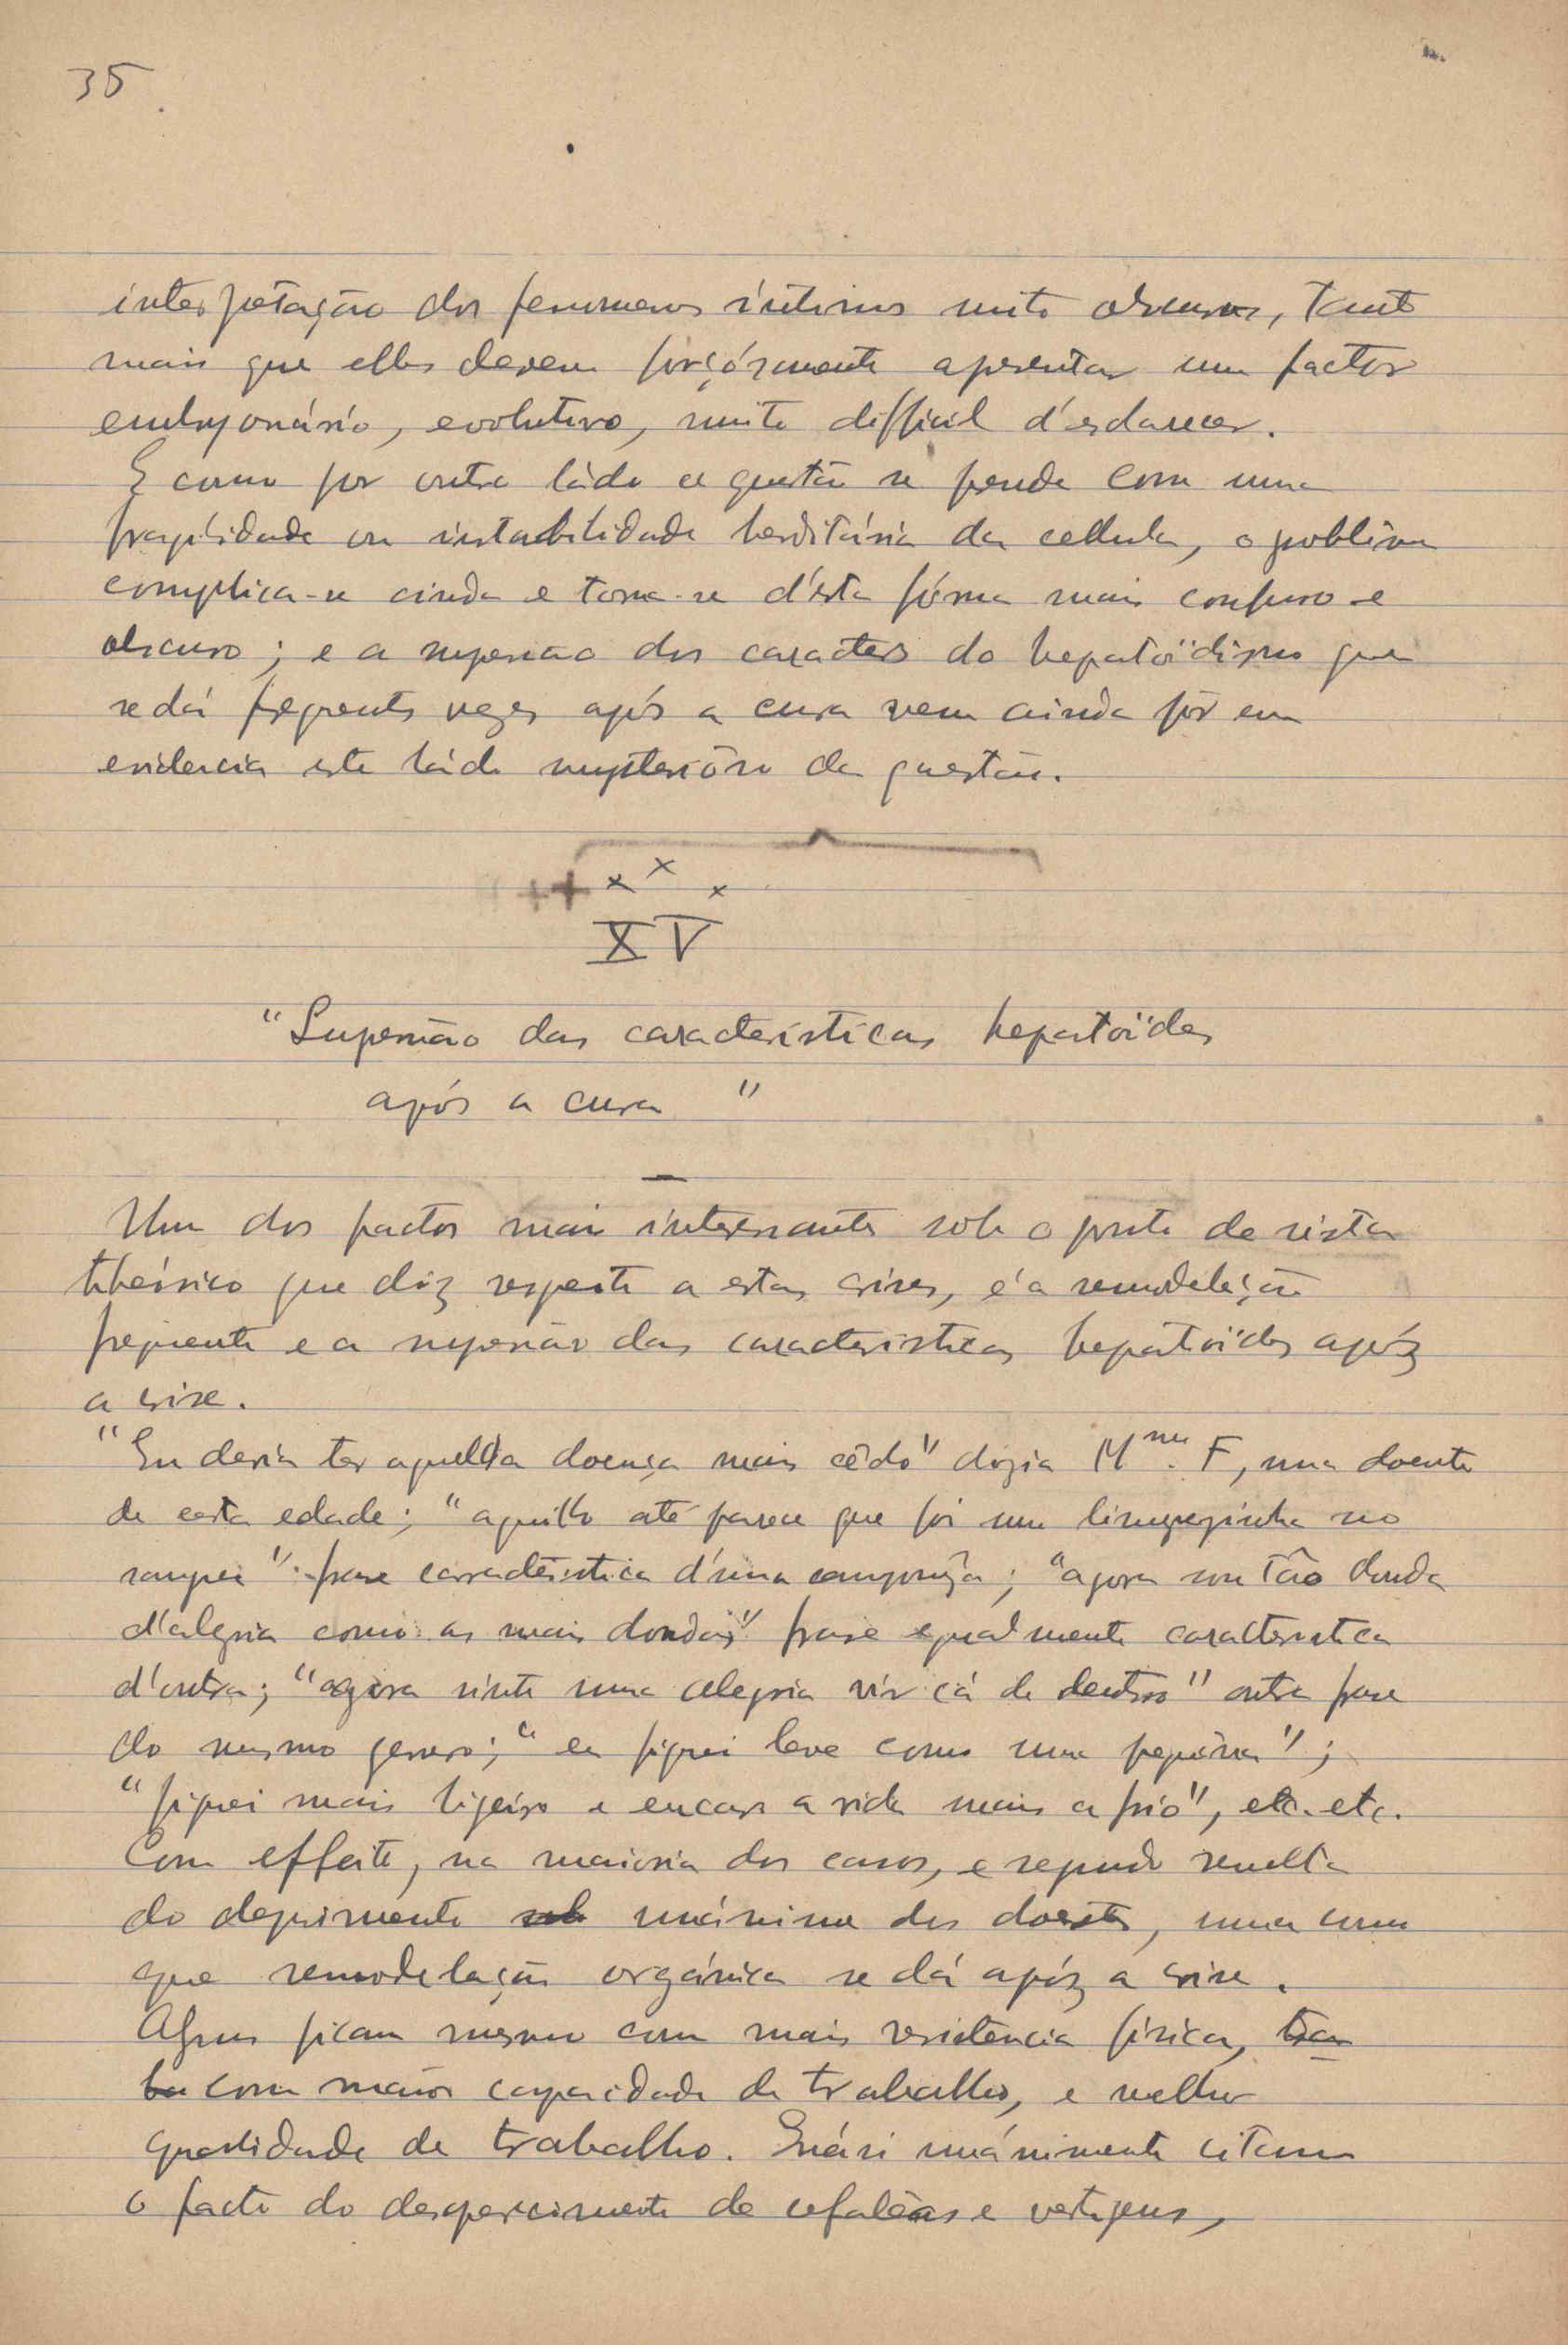 35
interpretação dos fenomenos intimos muito obscuros, tanto
mais que elles devem forçósamente apresentar um factor
embryonário, evolutivo, muito difficil d'esclarecer.
E como por outro ládo a questão se prende com uma
fragilidade ou instabilidade herditária da cellula, o problêma
complica-se ainda e torna-se d'ésta fórma mais confuso e
obscuro; e a supressão dos caracteres do hepatoïdismo que
se dá frequentes vezes após a cura vem ainda pôr em
evidencia este ládo mysterióso da questão.
XV
"Supressão das características hepatoïdes
após a cura"
Um dos factos mais interessantes sob o ponto de vista
theórico que diz respeito a estas crises, é a remodelação
frequente e a supressão das caracteristicas hepatoïdes apóz
a crise.
"Eu devia ter aquella doença mais cêdo" dizia Mme. F, uma doente
de certa edade; "aquillo até parece que foi uma limpezinha no
sangue" frase característica d'uma camponeza; "agora sou tão douda
d'alegria como as mais doudas" frase egualmente caracteristica
d'outra; "agora sinto uma alegria vir cá de dentro" outra frase
do mesmo genero; "eu fiquei leve como uma"
"fiquei mais ligeiro e encaro a vida mais a frio", etc. etc.
Com effeito, na maioria dos casos, e segundo resulta
do depoimento unánime dos doentes, uma como
que remodelação orgánica se dá apóz a crise.
Alguns ficam mesmo com mais resistencia física,
com maior capacidade de trabalho, e melhor
qualidade de trabalho. Quási unánimente citam
o facto do desaparecimento de cefaléas e vertigens,